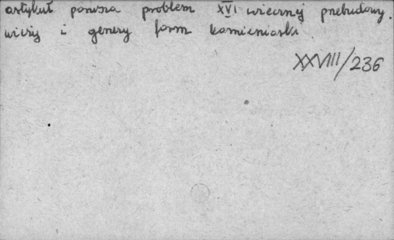 artykuł porusza problem XVI wiecznej przebudowy
wieży i genezy form kamieniarki.
XXVIII/236